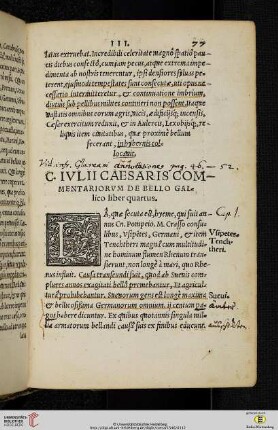 III. 77
latas extruebat. Incredibili celeritate magno spatio pau
cis diebus confecto, cum iam pecus, atque extrema impe
dimenta ab nostris tenerentur, ipsi densiores siluas pe
terent, eiusmodi tempestates sunt consecutæ, uti opus neces
sario intermitteretur, et continuatione imbrium,
diutius sub pellibus milites contineri non possent. Itaque
uastatis omnibus eorum agris, uicis, ædificiisq; incensis,
Cæsar exercitum reduxit, et in Aulercis, Lexobiisq; re
liquis item ciuitatibus, quæ proximè bellum
fecerant, in hibernis col-
locauit.
pag. 46. - 52.
C. IVLII CAESARIS COM-
MENTARIORVM DE BELLO GAL-
lico liber quartus.
Cap. 1.
EA, quæ secuta est, hyeme, qui fuit an-
nus Cn. Pompeio, M. Crasso consu-
libus, Vsipetes, Germani, et item
Tenchtheri magna cum multitudi-
ne hominum flumen Rhenum trans
ierunt, non longè à mari, quo Rhe-
nus influit. Causa transeundi fuit, quod ab Sueuis com-
plures annos exagitati bello premebantur, et agricultu-
ra prohibebantur. Sueuorum gens est longè maxima
et bellicosissima Germanorum omnium. ii centum pa-
gos habere dicuntur. Ex quibus quotannis singula mil-
lia armatorum bellandi causa suis ex finibus educunt.
Vsipetes
Tench-
theri.
Sueui